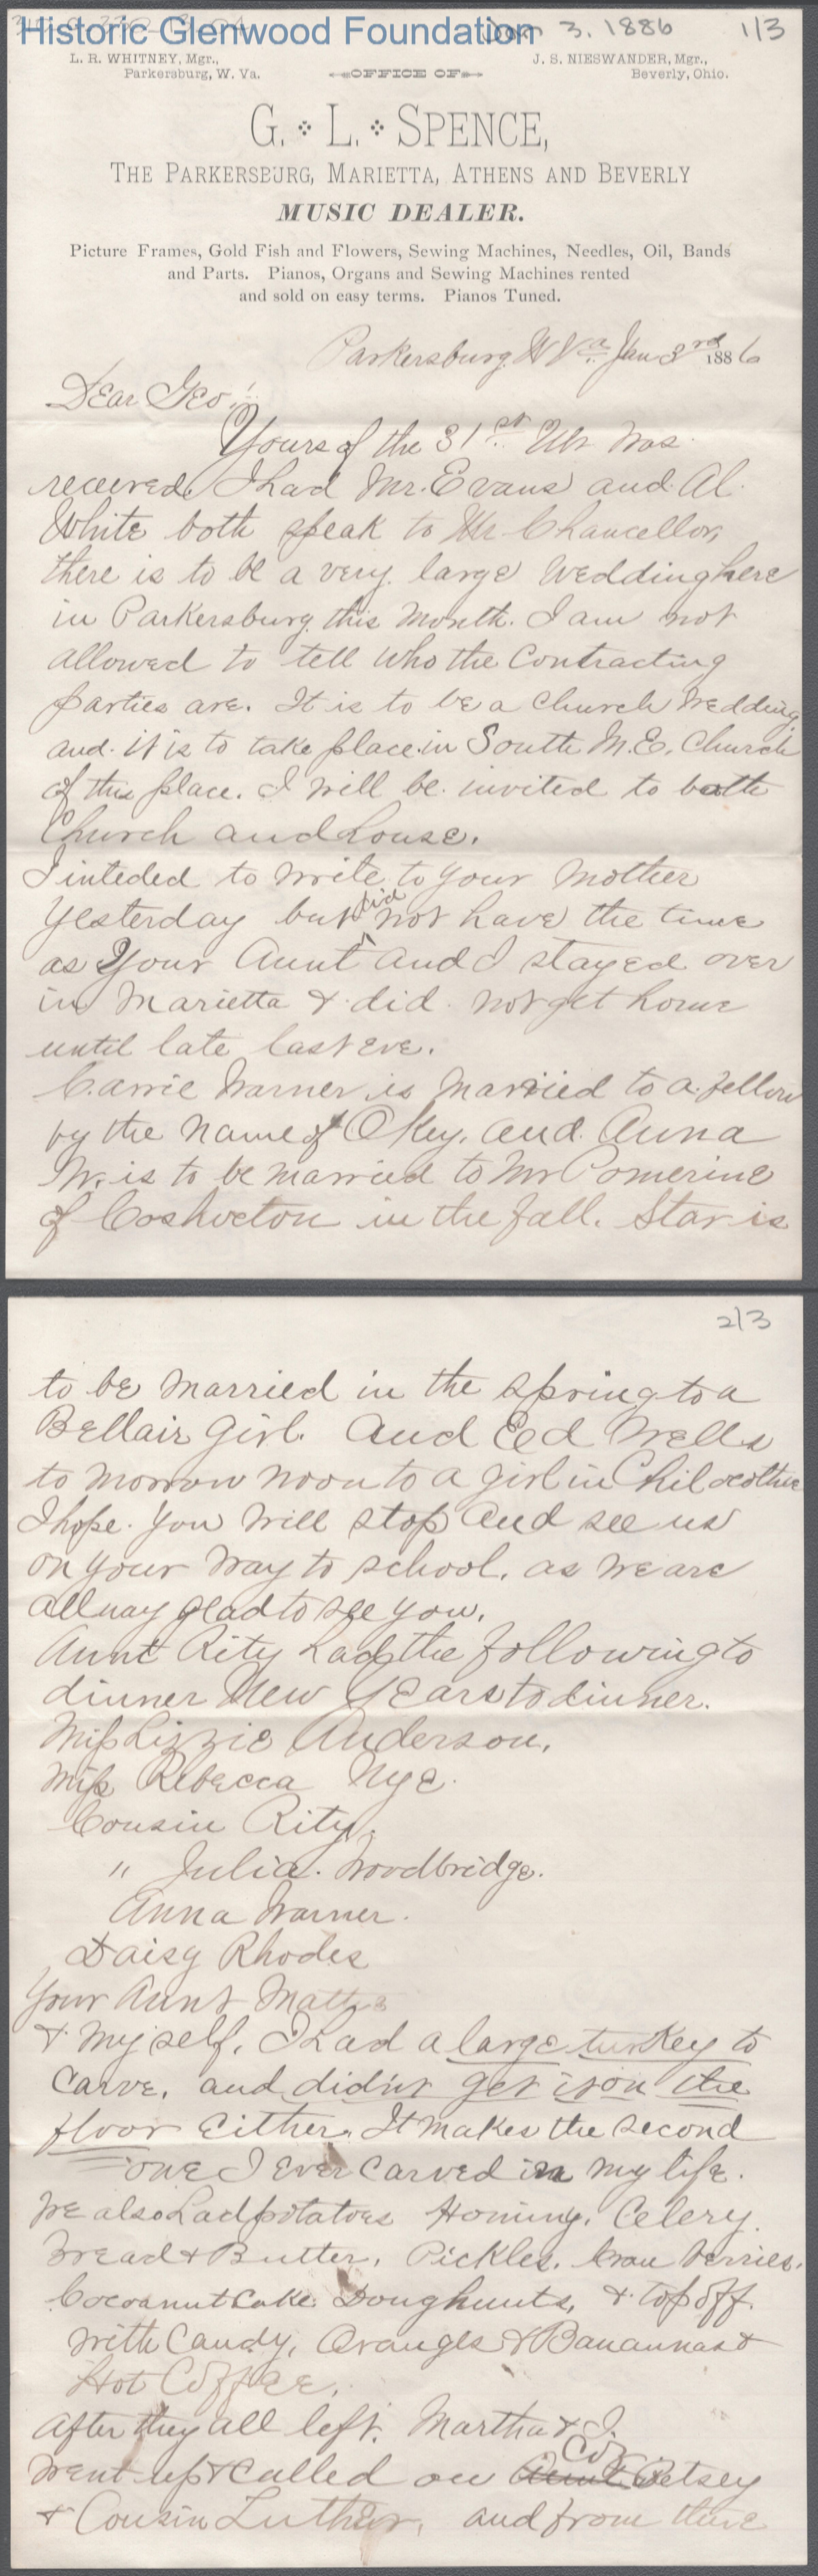 Historic Glenwood Foundation
Jan 3, 1886 1/3
L. R. WHITNEY, Mgr., J. S. NIESWANDER, Mgr.,
Parkersburg, W. Va. OFFICE OF Beverly, Ohio.
G. L. SPENCE,
THE PARKERSBURG, MARIETTA, ATHENS AND BEVERLY
MUSIC DEALER.
Picture Frames, Gold Fish and Flowers, Sewing Machines, Needles, Oil, Bands
and Parts. Pianos, Organs and Sewing Machines rented
and sold on easy terms. Pianos Tuned.
Parkersburg, W Va. Jan 3rd 1886
Dear Geo!
Yours of the 31st Ult was
received, I had Mr. Evans and Al.
White both speak to Mr Chancellor,
there is to be a very large Wedding here
in Parkersburg this Month. I am not
allowed to tell who the Contracting
parties are. It is to be a Church Wedding,
and it is to take place in South M.E. Church
of this place. I will be invited to both
Church and house.
I inteded to write to your Mother
Yesterday but did not have the time
as Your Aunt and I stayed over
in Marietta & did not get home
until late last eve.
Carrie Warner is Married to a fellow
by the name of Okey, and Anna
W. is to be married to Mr Pomerine
of Coshocton in the fall. Star is
2/3
to be Married in the spring to a
Bellair Girl. And Ed Wells
to morrow noon to a girl in Chilocothe
I hope you will stop and see us
on your way to school, as we are
all way glad to see you.
Aunt Rity had the following to
dinner New Years to dinner.
Miss Lizzie Anderson,
Miss Rebecca Nye.
Cousin Rity,
" Julia Woodbridge.
Anna Warner.
Daisy Rhodes
Your Aunt Matty
& Myself. I had a large turkey to
Carve, and didn't get it on the
floor Either. It makes the second
one I ever carved in my life.
We also had potatoes Hominy, Celery.
Bread & Butter, Pickles, Cran berries,
Cocoanut Cake. Doughnuts, & top off.
With Candy, Oranges & Banannas &
Hot Coffee.
After they all left. Martha & I.
Went up & Called on Aunt Coz Betsey
& Cousin Luther, and from there